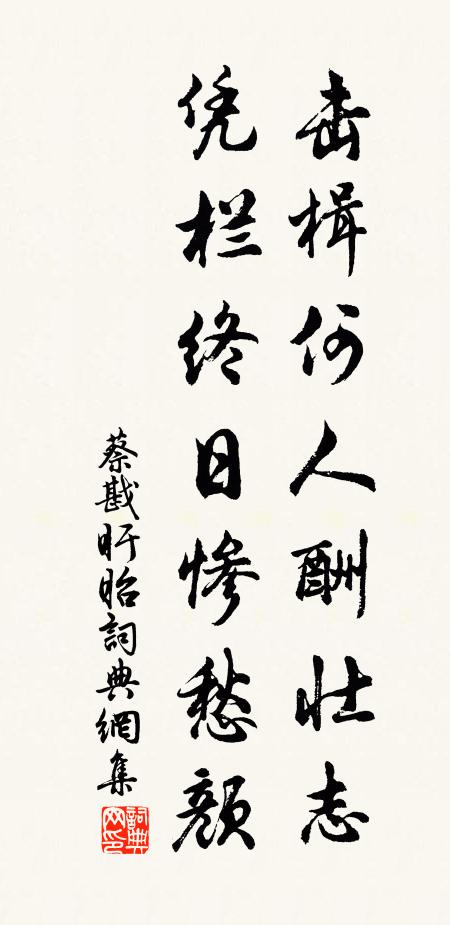 击楫何人酬壮志
凭栏终日惨愁颜
蔡戡盱眙詞典網集
詞典网印